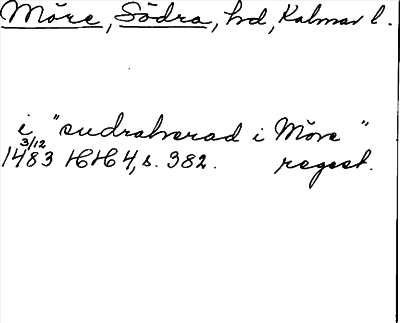 Möre, Södra, hd, Kalmar l.
i "sudrahærad i Möre"
3/12
1483 HH 4, s. 382. regest.